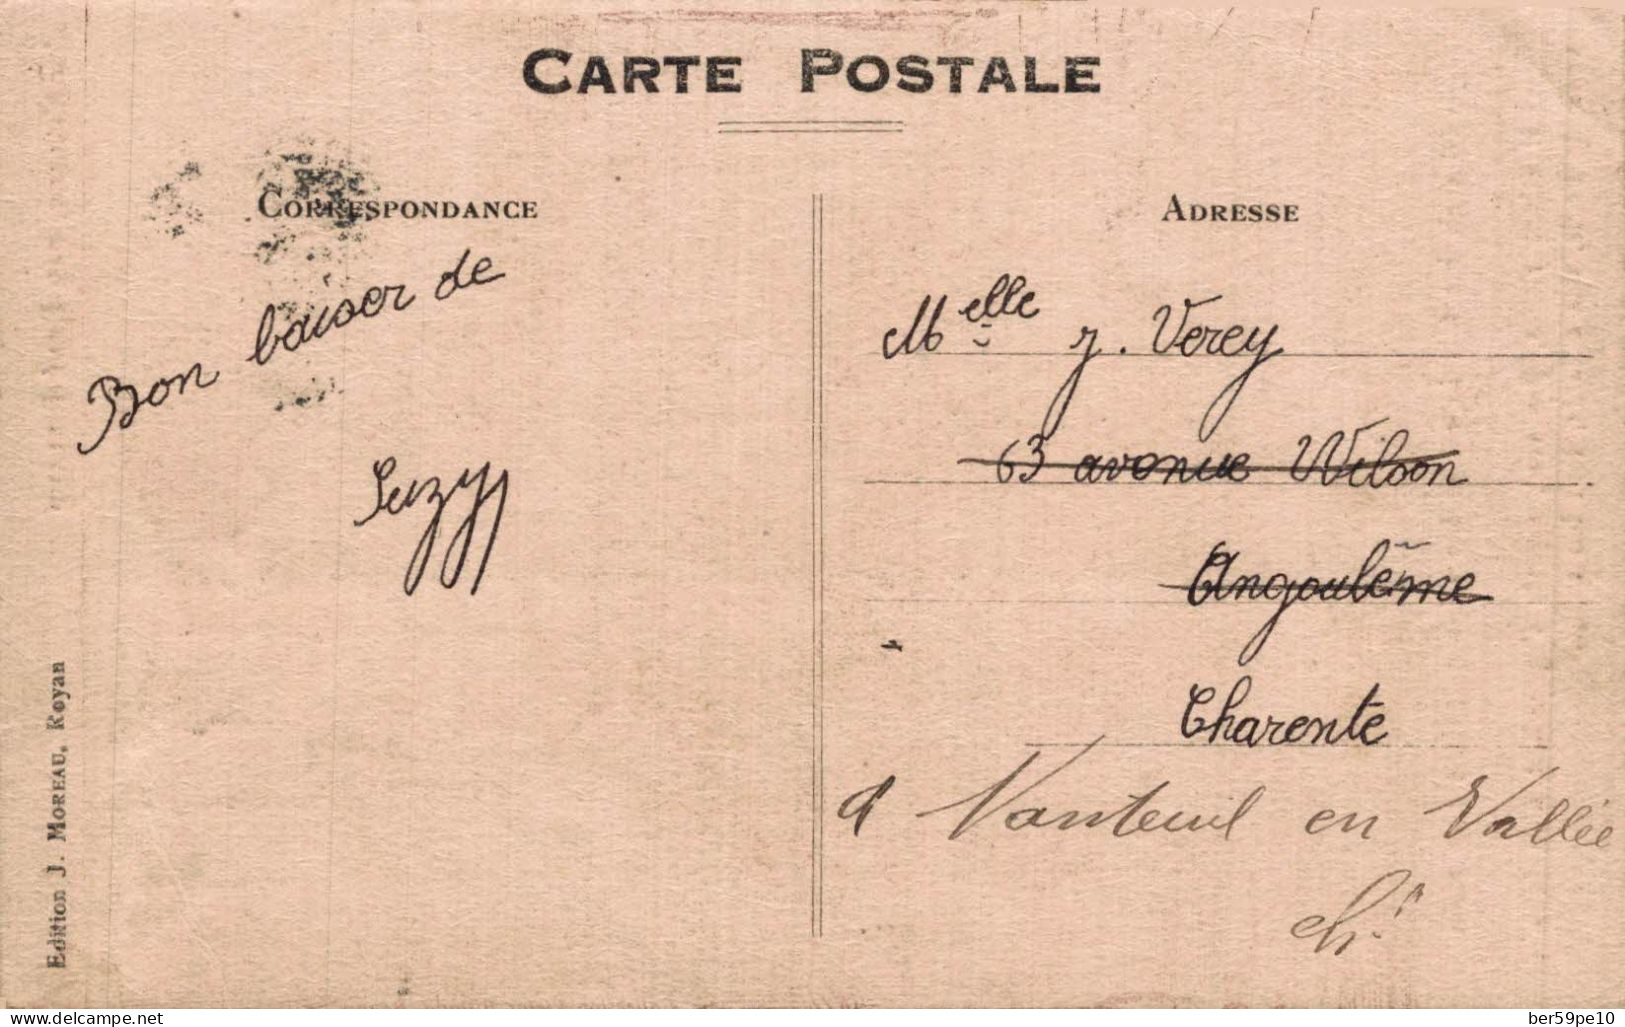 CARTE POSTALE
CORRESPONDANCE
Bon baiser de
Suzy
Edition J. MOREAU, Royan
ADRESSE
Melle J. Verey
63 avenue Wilson
Angoulême
Charente
à Nanteuil en Vallée
Chte
www.delcampe.net
ber59pe10